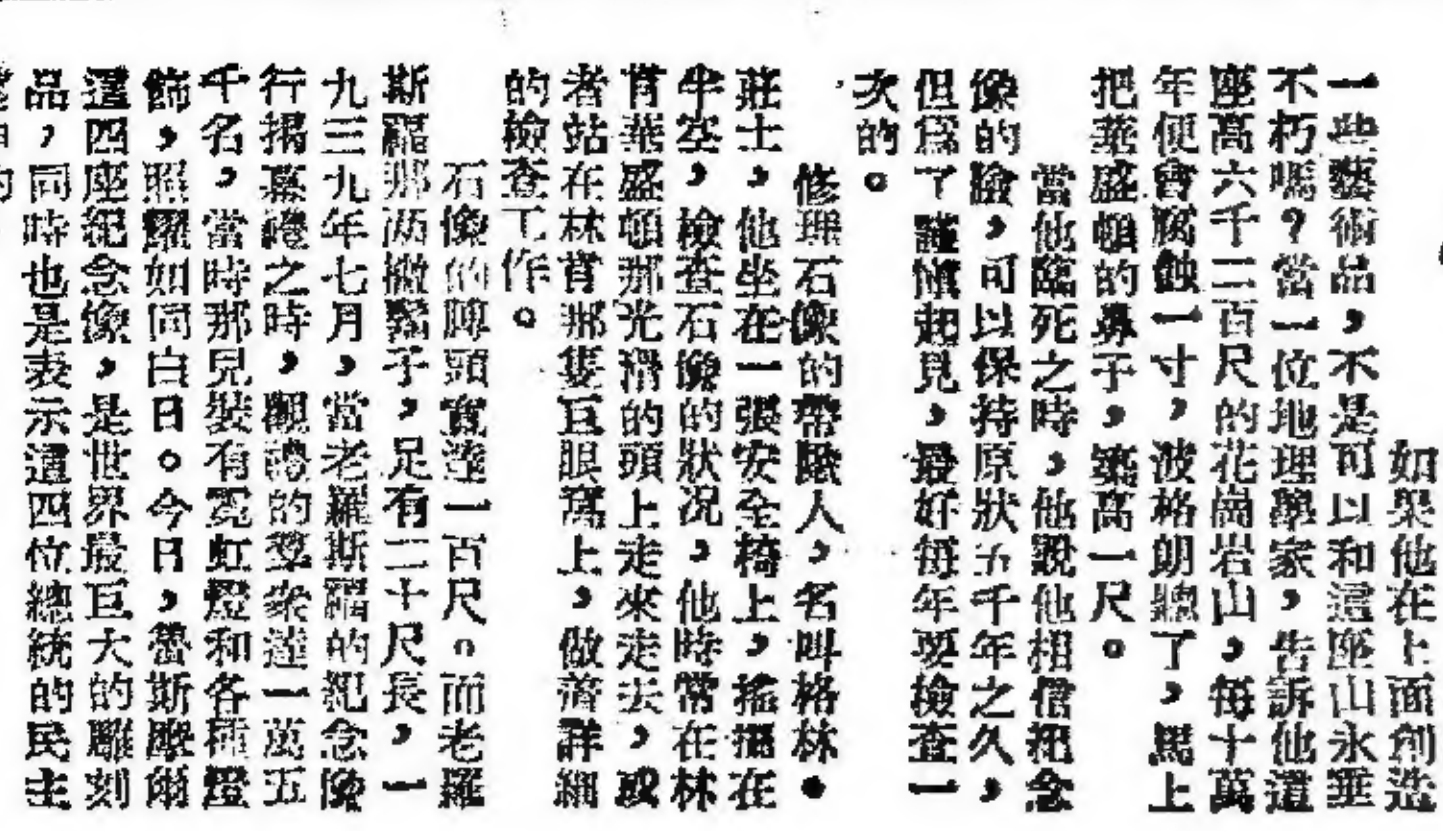 如果他在上面創造
一些藝術品，不是可以和這座山永垂
不朽嗎？當一位地理學家，告訴他這
座高六千二百尺的花崗岩山，每十萬
年便會腐蝕一寸，波格朗聽了，馬上
把華盛頓的鼻子，築高一尺。
當他臨死之時，他說他相信紀念
像的臉，可以保持原狀五千年之久，
但爲了謹愼起見，最好每年要檢查一
次的。
修理石像的帶隊人，名叫格林•
莊士，他坐在一張安全椅上，搖擺在
半空，檢查石像的狀况，他時常在林
肯華盛頓那光滑的頭上走來走去，或
者站在林肯那隻巨眼窩上，做着詳細
的檢查工作。
石像的陣頭寬達一百尺。而老羅
斯羅那两撇鬍子，足有二十尺長，一
九三九年七月，當老羅斯羅的紀念像
行揭幕禮之時，觀禮的羣衆達一萬五
千名，當時那兒裝有霓虹燈和各種燈
飾，照耀如同白日。今日，魯斯摩爾
這四座紀念像，是世界最巨大的雕刻
品，同時也是表示這四位總統的民主